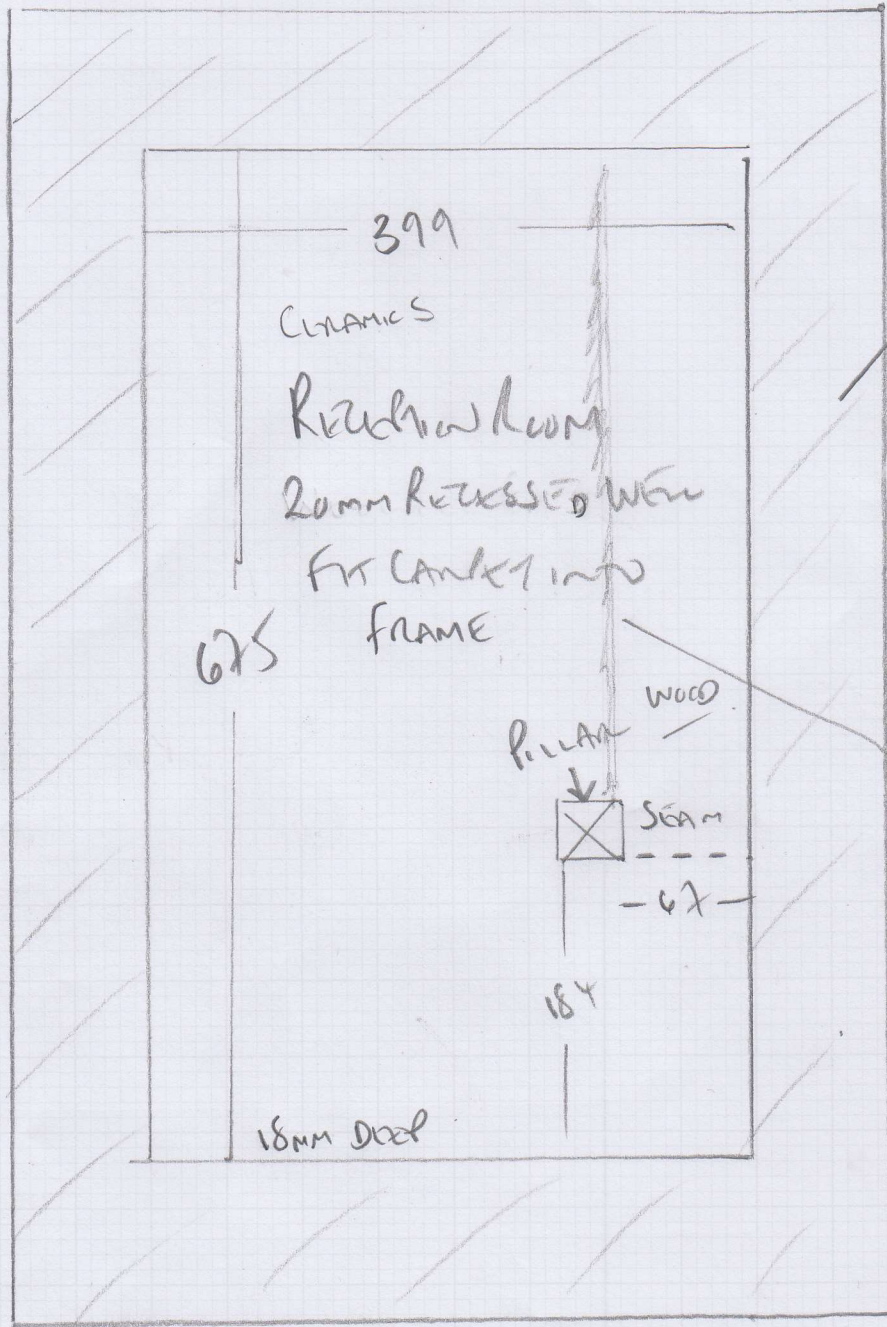 399
CERAMICS
RECEPTION ROOM
20MM RECESSED WELL
FIT CARPET INTO
FRAME
675
WOOD
PILLAR
SEAM
67
184
18MM DEEP